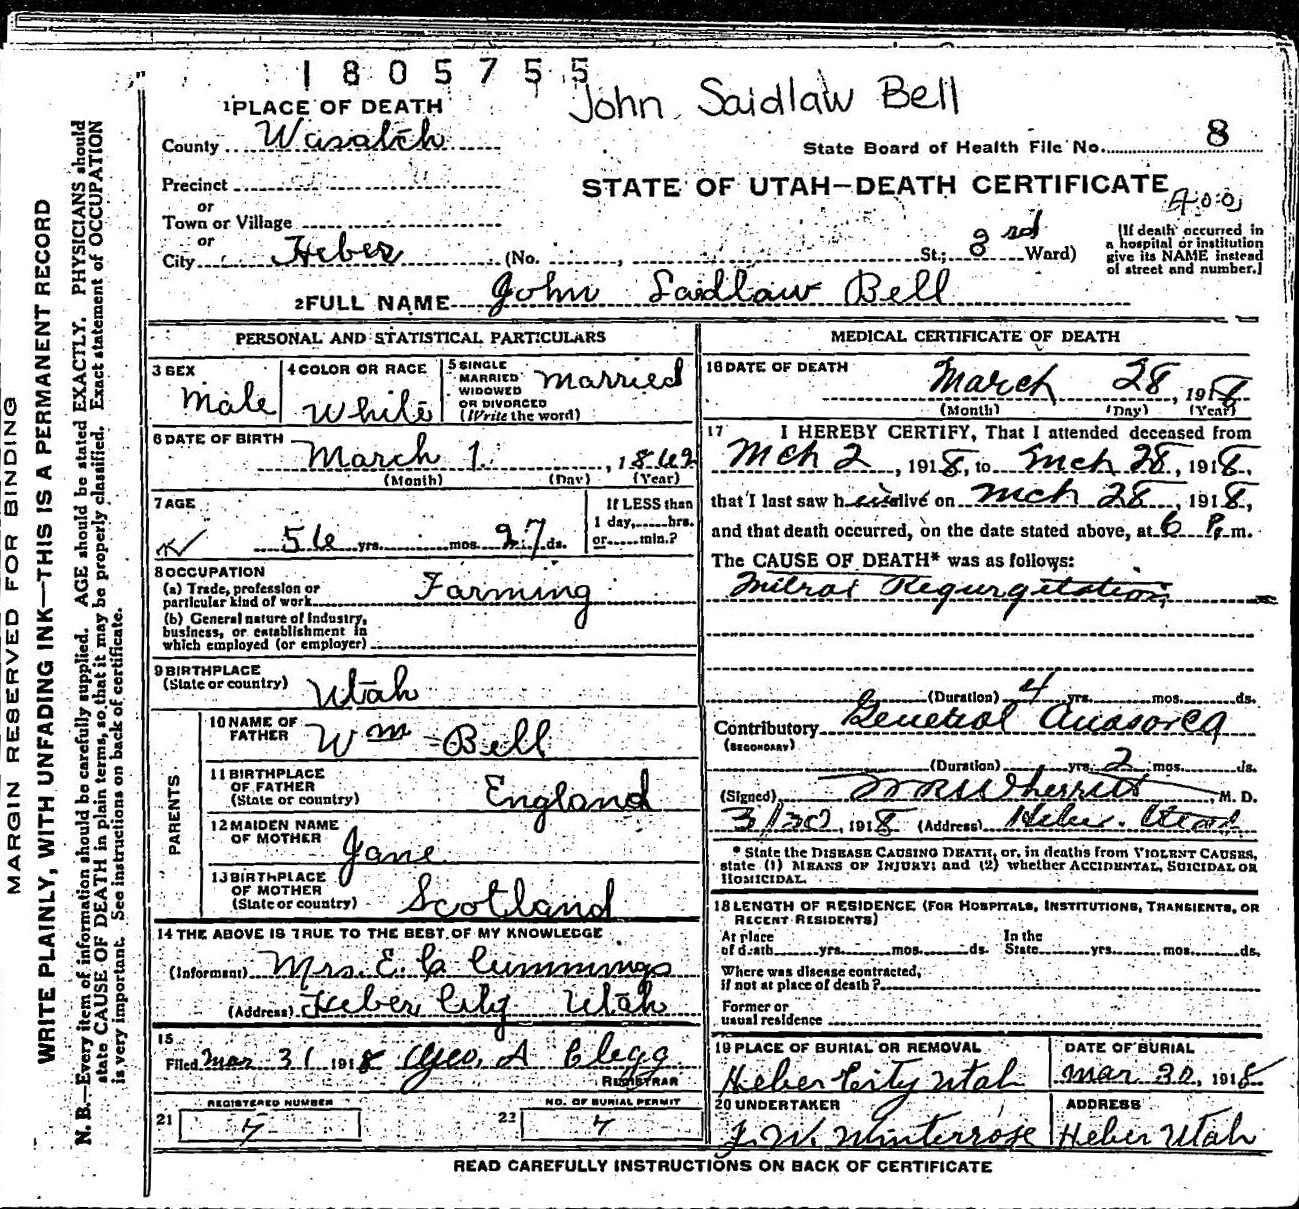 1805755
John Saidlaw Bell
1 PLACE OF DEATH
County Wasatch
State Board of Health File No. 8
Precinct
or
Town or Village
or
City Heber (No. , St.; 3rd Ward)
STATE OF UTAH—DEATH CERTIFICATE
400
[If death occurred in a hospital or institution give its NAME instead of street and number.]
2 FULL NAME John Saidlaw Bell
PERSONAL AND STATISTICAL PARTICULARS
3 SEX
Male
4 COLOR OR RACE
White
5 SINGLE
MARRIED
WIDOWED
OR DIVORCED
(Write the word)
Married
6 DATE OF BIRTH
March 1. , 1862
(Month) (Day) (Year)
7 AGE
56 yrs. mos. 27 ds.
If LESS than
1 day, hrs.
or min.?
8 OCCUPATION
(a) Trade, profession or
particular kind of work Farming
(b) General nature of Industry,
business, or establishment in
which employed (or employer)
9 BIRTHPLACE
(State or country) Utah
PARENTS
10 NAME OF
FATHER Wm Bell
11 BIRTHPLACE
OF FATHER
(State or country) England
12 MAIDEN NAME
OF MOTHER Jane
13 BIRTHPLACE
OF MOTHER
(State or country) Scotland
14 THE ABOVE IS TRUE TO THE BEST OF MY KNOWLEDGE
(Informant) Mrs. E. C Cummings
(Address) Heber City Utah
15
Filed Mar 31 1918 Geo. A Clegg
REGISTRAR
REGISTERED NUMBER
21 7
NO. OF BURIAL PERMIT
22 7
MEDICAL CERTIFICATE OF DEATH
16 DATE OF DEATH
March 28 , 1918
(Month) (Day) (Year)
17 I HEREBY CERTIFY, That I attended deceased from
Mch 2 , 1918, to Mch 28, 1918,
that I last saw him alive on Mch 28, 1918,
and that death occurred, on the date stated above, at 6 P.m.
The CAUSE OF DEATH* was as follows:
Mitral Regurgitation
(Duration) 4 yrs. mos. ds.
Contributory General Anasorca
(SECONDARY)
(Duration) yrs. 2 mos. ds.
(Signed) W R Wherritt, M. D.
3/30, 1918 (Address) Heber. Utah
* State the DISEASE CAUSING DEATH, or, in deaths from VIOLENT CAUSES,
state (1) MEANS OF INJURY; and (2) whether ACCIDENTAL, SUICIDAL OR
HOMICIDAL.
18 LENGTH OF RESIDENCE (FOR HOSPITALS, INSTITUTIONS, TRANSIENTS, OR
RECENT RESIDENTS)
At place In the
of death yrs. mos. ds. State yrs. mos. ds.
Where was disease contracted,
if not at place of death?
Former or
usual residence
19 PLACE OF BURIAL OR REMOVAL
Heber City Utah
DATE OF BURIAL
Mar 30, 1918
20 UNDERTAKER
J. W. Winterrose
ADDRESS
Heber Utah
READ CAREFULLY INSTRUCTIONS ON BACK OF CERTIFICATE
MARGIN RESERVED FOR BINDING
WRITE PLAINLY, WITH UNFADING INK—THIS IS A PERMANENT RECORD
N. B.—Every item of information should be carefully supplied. AGE should be stated EXACTLY. PHYSICIANS should
state CAUSE OF DEATH in plain terms, so that it may be properly classified. Exact statement of OCCUPATION
is very important. See instructions on back of certificate.